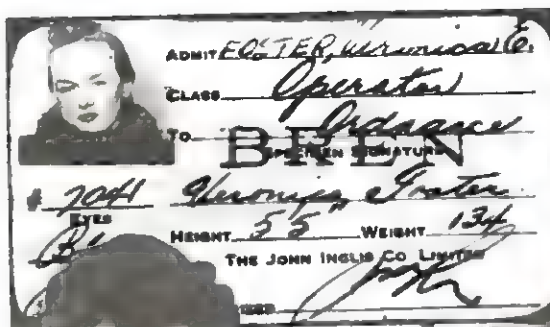 ADMIT FOSTER, Veronica E.
CLASS Operator
TO Ordnance
BREN
SPECIMEN SIGNATURE
# 7041 Veronica Foster
EYES
HEIGHT 5 5 WEIGHT 134
THE JOHN INGLIS CO LIMITED